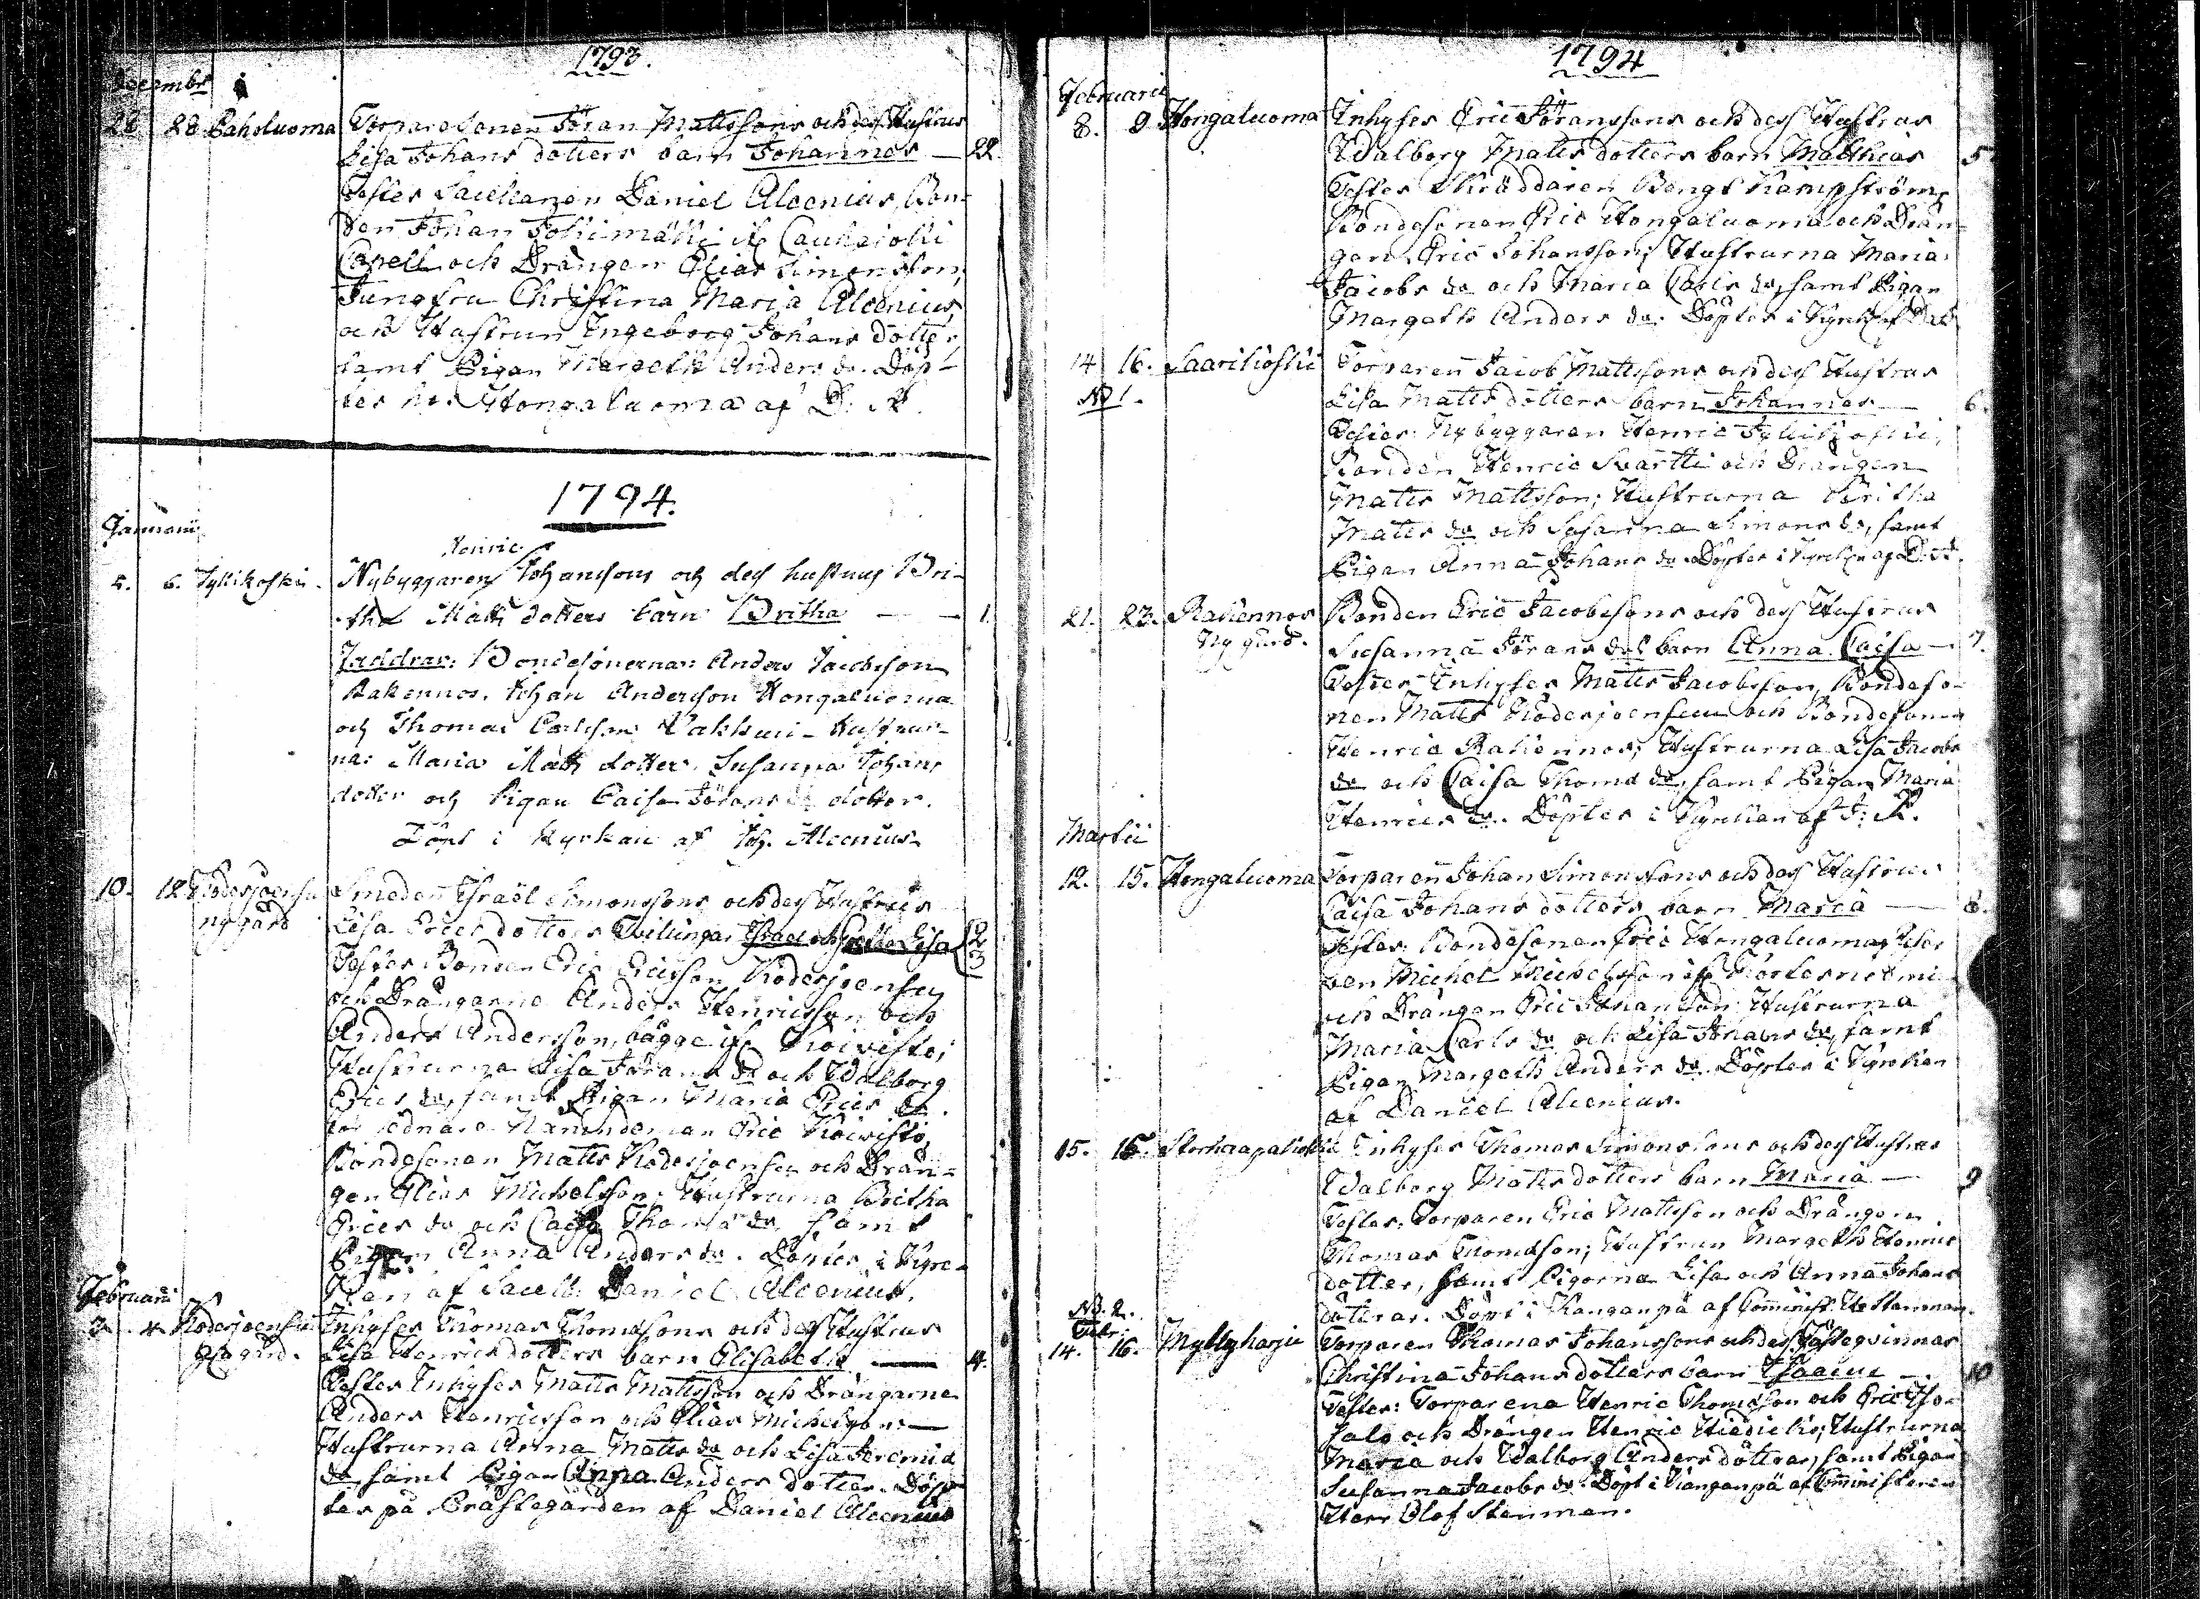 1793.
Decembr
28 28 Paholuoma Torparesonen Jöran Mattssons och des Hustrus
Lisa Johans dotters barn Johannes — 22.
Testes Sacellanen Daniel Alcenius, Bon-
den Johan
Capell och Drängen Elias Simonsson,
Jungfru Christina Maria Alcenius,
och Hustrun Ingeborg Johans dotter,
samt Pigan Margeth Anders dr. Döp-
tes i Hongaluoma af D. A.
1794.
Januarii
Henric
5. 6. Jyllikoski. Nybyggaren Johanssons och des hustrus Bri-
tha Matts dotters barn Britha — 1.
Faddrar: Bondesönerna: Anders Jacobsson
Rakennos, Johan Andersson Hongaluoma
och Thomas Carlsson Hustrur-
na: Maria Matts dotter, Susanna Johans
dotter och Pigan Caisa Jörans dotter.
Döpt i Kyrkan af Joh. Alcenius.
10. 12 Kodesjoensu Smeden Israël Simonssons och des Hustrus
ny gård Lisa Erics dotters Twilingar Israel och Lisa 2 3
Testes Bonden Eric Ericsson Kodesjoensu
och Drängarne Anders Henricsson och
Anders Andersson, bägge ifr. Koivisto;
Hustrurna Lisa Jörans dr och Walborg
Erics dr, samt Pigan Maria Erics dr.
Nämndeman Eric Koivisto,
Bondesonen Matts Kodesjoensu och Drän-
gen Elias Michelsson; Hustrurna Britha
Erics dr och Caisa Thomæ dr, samt
Pigan Anna Anders dr. Döptes i Kyrc-
kan af Sacell. Daniel Alcenius.
Februarii
3. 4. Kodesjoensu Inhyses Thomas Thomæsons och des Hustrus
gård. Lisa Henricsdotters barn Elisabeth — 4.
Testes Inhyses Matts Mattsson och Drängarne
Anders Henricsson och Elias Michelsson;
Hustrurna Anna Matts dr och Lisa Jeremiæ
dr, samt Pigan Anna Anders dotter. Döp-
tes på Prästegården af Daniel Alcenius
1794
Februarii
8. 9 Hongaluoma Inhyses Eric Jöranssons och des Hustrus
Walborg Matts dotters barn Matthias 5
Testes Skräddaren Bengt Kampström,
Bondesonen Eric Hongaluoma och Drän-
gen Eric Johansson; Hustrurna Maria
Jacobs dr och Maria Carls dr, samt Pigan
Margeth Anders dr. Döptes i Kyrk. af D. A.
14 16. Saarikoski Torparen Jacob Mattssons och des Hustrus
No 1. Lisa Matts dotters barn Johannes — 6.
Testes: Nybyggaren Henric Jyllikoski,
Bonden Henric Svartti och Drängen
Matts Mattsson; Hustrurna Britha
Matts dr och Susanna Simons dr, samt
Pigan Anna Johans dr. Döptes i Kyrckan af D. A.
21. 23. Rakennos Bonden Eric Jacobssons och des Hustrus
Ny gård. Susanna Jörans dr barn Anna Caisa — 7.
Testes Inhyses Matts Jacobsson, Bondeso-
nen Matts Kodesjoensuu och Bondesonen
Henric Rakennos; Hustrurna Lisa Jacobs
dr och Caisa Thomæ dr, samt Pigan Maria
Henrics dr. Döptes i Kyrckan af J. R.
Martii
12. 15. Hongaluoma Torparen Johan Simonssons och des Hustrus
Caisa Johans dotters barn Maria — 8.
Testes: Bondesonen Eric Hongaluoma,
Michel Michelsson ifr.
och Drängen Eric Johansson; Hustrurna
Maria Carls dr och Lisa Johans dr, samt
Pigan Margeth Anders dr. Döptes i Kyrckan
af Daniel Alcenius.
15. 15. Storhaapakoski Inhyses Thomas Simonssons och des Hustrus
Walborg Matts dotters barn Maria — 9
Testes: Torparen Eric Mattsson och Drängen
Thomas Thomæson; Hustrun Margeth Henrics
dotter, samt Pigorna Lisa och Anna Johans
döttrar. Döpt i Kanganpä af Commin. Hr Stenman.
No. 2.
Febr.
14. 16. Myllyharju Torparen Thomas Johanssons och des Fästeqvinnas
Christina Johans dotters barn Isaac — 10
Testes: Torparena Henric Thomæson och Eric Iso-
salo och Drängen Henric; Hustrurna
Maria och Walborg Anders döttrar, samt Pigan
Susanna Jacobs dr. Döpt i Kanganpä af Comministeren
Herr Olof Stenman.